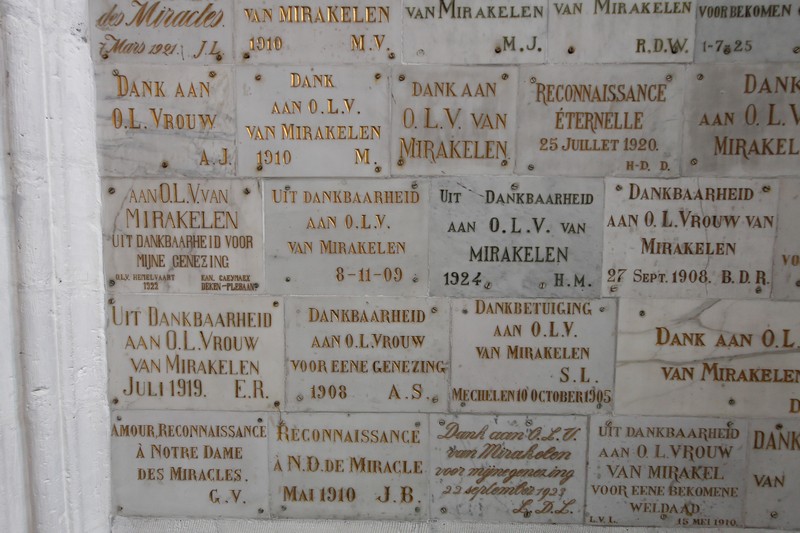 des Miracles.
7 Mars 1921. J.L.
VAN MIRAKELEN
1910 M.V.
VAN MIRAKELEN
M.J.
VAN MIRAKELEN
R.D.W.
VOOR BEKOMEN
1-7-25
DANK AAN
O.L. VROUW
A.J.
DANK
AAN O.L.V.
VAN MIRAKELEN
1910 M.
DANK AAN
O.L.V. VAN
MIRAKELEN
RECONNAISSANCE
ÉTERNELLE
25 JUILLET 1920.
H-D. D.
DANK
AAN O.L.V
MIRAKEL
AAN O.L.V. VAN
MIRAKELEN
UIT DANKBAARHEID VOOR
MIJNE GENEZING
O.L.V. HEMELVAART
1922
KAN. CAEYMAEX
DEKEN-PLEBAAN
UIT DANKBAARHEID
AAN O.L.V.
VAN MIRAKELEN
8-11-09
UIT DANKBAARHEID
AAN O.L.V. VAN
MIRAKELEN
1924 H.M.
DANKBAARHEID
AAN O.L.VROUW VAN
MIRAKELEN
27 SEPT. 1908. B.D.R.
VO
UIT DANKBAARHEID
AAN O.L.VROUW
VAN MIRAKELEN
JULI 1919. E.R.
DANKBAARHEID
AAN O.L.VROUW
VOOR EENE GENEZING
1908 A.S.
DANKBETUIGING
AAN O.L.V.
VAN MIRAKELEN
S.L.
MECHELEN 10 OCTOBER 1905
DANK AAN O.L
VAN MIRAKELEN
D
AMOUR, RECONNAISSANCE
À NOTRE DAME
DES MIRACLES.
G.V.
RECONNAISSANCE
À N.D. DE MIRACLE
MAI 1910 J.B.
Dank aan O.L.V.
van Mirakelen
voor mijne genezing
22 september 1923
L.D.L.
UIT DANKBAARHEID
AAN O.L.VROUW
VAN MIRAKEL
VOOR EENE BEKOMENE
WELDAAD
L.V.L. 15 MEI 1910.
DANK
VAN